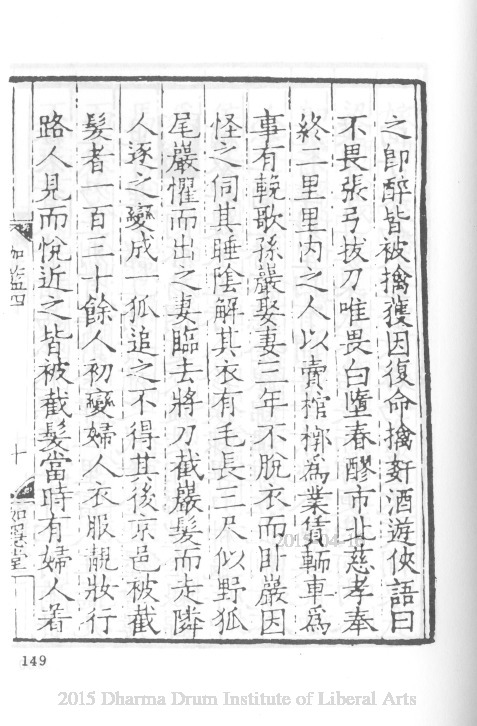 之即醉皆被擒獲因復命擒姧酒遊俠語曰
不畏張弓拔刀唯畏白墮春醪市北慈孝奉
終二里里內之人以賣棺槨為業賃輀車為
事有輓歌孫巖娶妻三年不脫衣而臥巖因
怪之伺其睡陰解其衣有毛長三尺似野狐
尾巖懼而出之妻臨去將刀截巖髮而走隣
人逐之變成一狐追之不得其後京邑被截
髮者一百三十餘人初變婦人衣服靚妝行
路人見而悅近之皆被截髮當時有婦人著
伽藍四
十
如隱堂
149
2015 Dharma Drum Institute of Liberal Arts